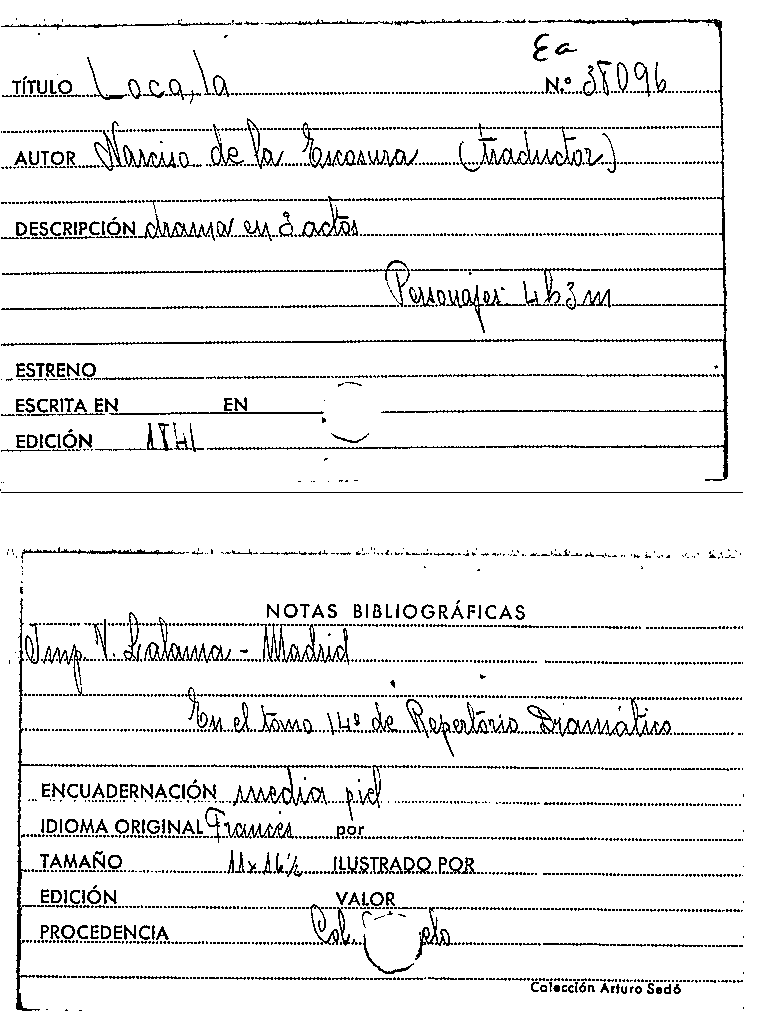 Ea
TÍTULO Loca, la N.º 38096
AUTOR Narciso de la Escosura (traductor)
DESCRIPCIÓN drama en 3 actos
Personajes 4h 3m
ESTRENO
ESCRITA EN EN
EDICIÓN 1841
NOTAS BIBLIOGRÁFICAS
Imp. V. Lalama - Madrid
En el tomo 14º de Repertorio Dramático
ENCUADERNACIÓN media piel
IDIOMA ORIGINAL Francés por
TAMAÑO 11x16½ ILUSTRADO POR
EDICIÓN VALOR
PROCEDENCIA Col.
Colección Arturo Sedó